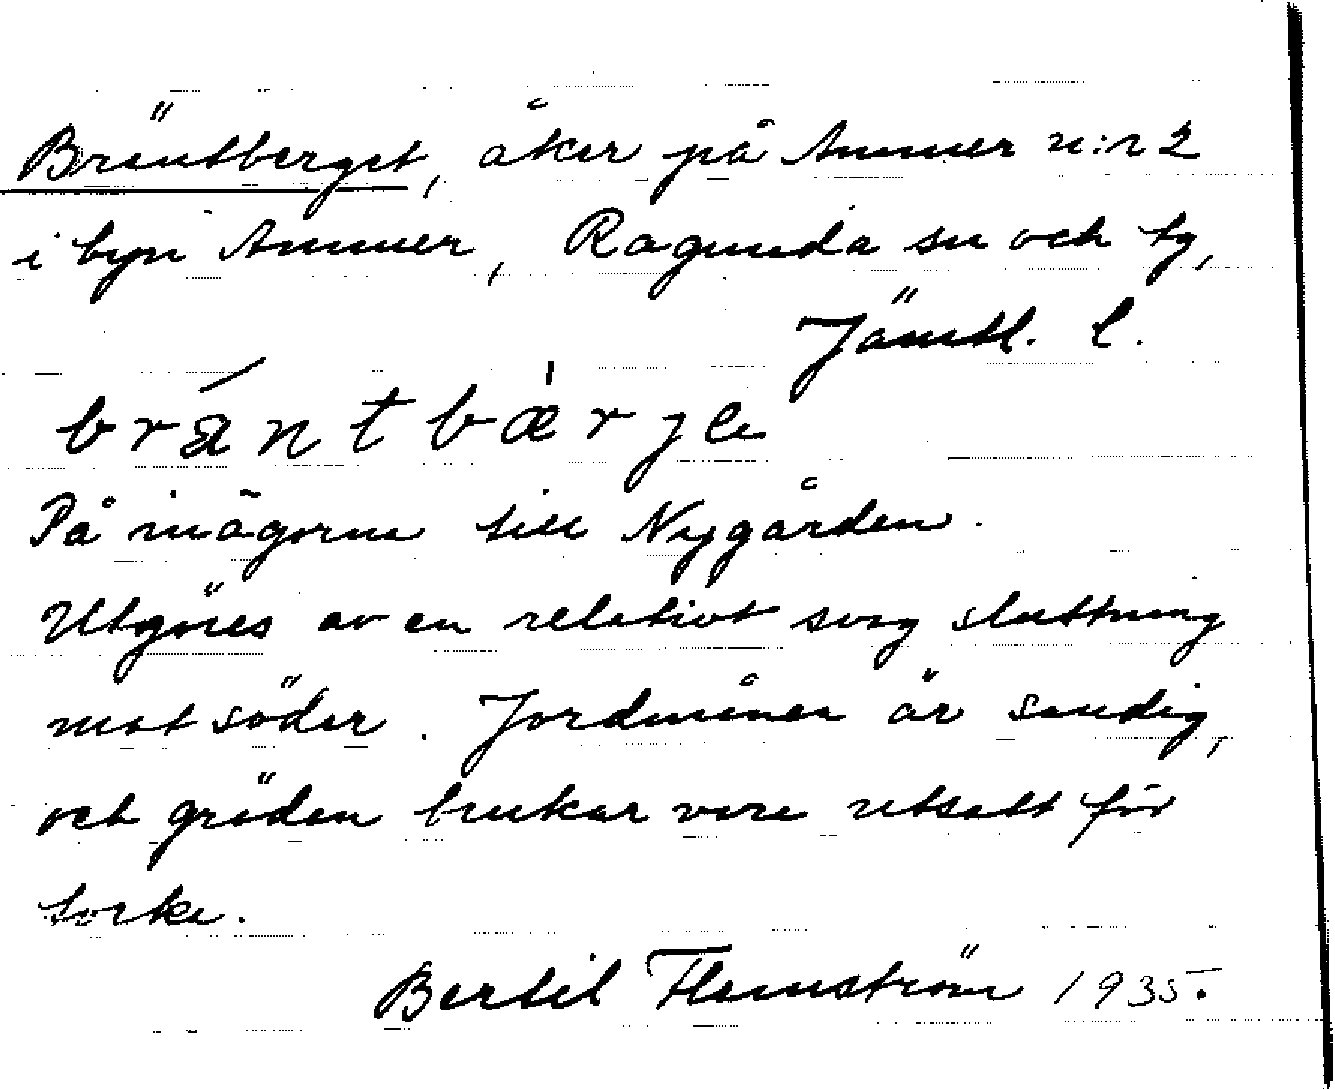 Bräntberget, åker på Ammer n:r 2
i byn Ammer, Ragunda sn och tg,
Jämtl. l.
bräntbærje
På inägorna till Nygården.
Utgöres av en relativt svag sluttning
mot söder. Jordmånen är sandig,
och gröden brukar vara utsatt för
torka.
Bertil Flemström 1935.